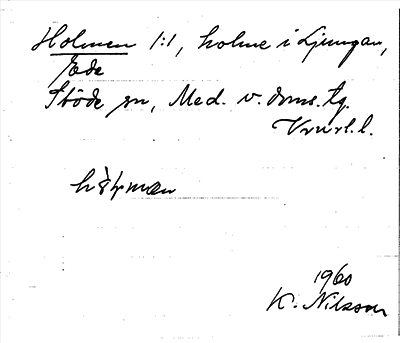 Holmen 1:1, holme i Ljungan,
Ede
Stöde sn, Med. v. doms. tg.
Vnrl. l.
1960
K. Nilsson